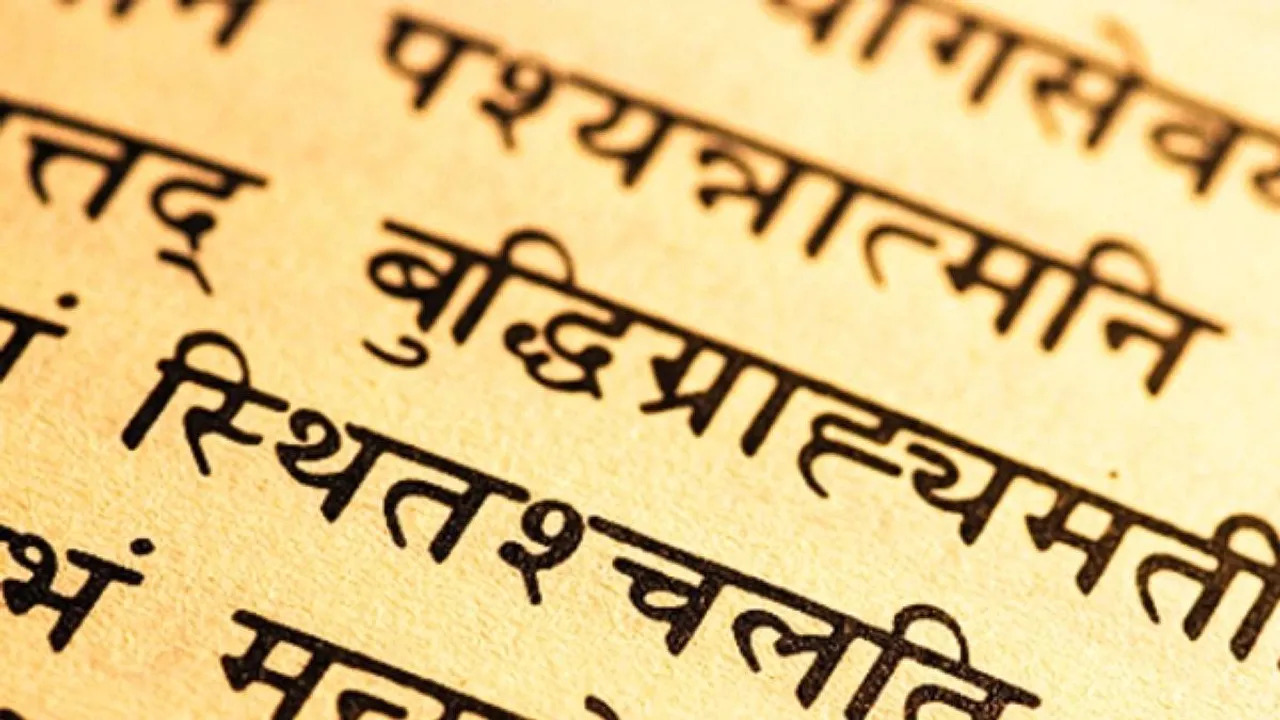 योगसेवय
पश्यन्नात्मनि
त्तद् बुद्धिग्राह्यमती
स्थितश्चलति
भं